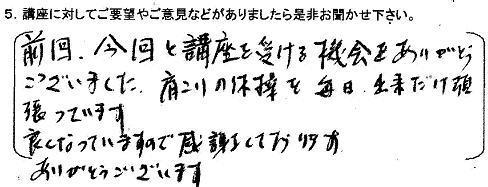 5. 講座に対してご要望やご意見などがありましたら是非お聞かせ下さい。
前回、今回と講座を受ける機会をありがとう
ございました。肩こりの体操を毎日出来だけ頑
張っています
良くなっていますので感謝をしております
ありがとうございます